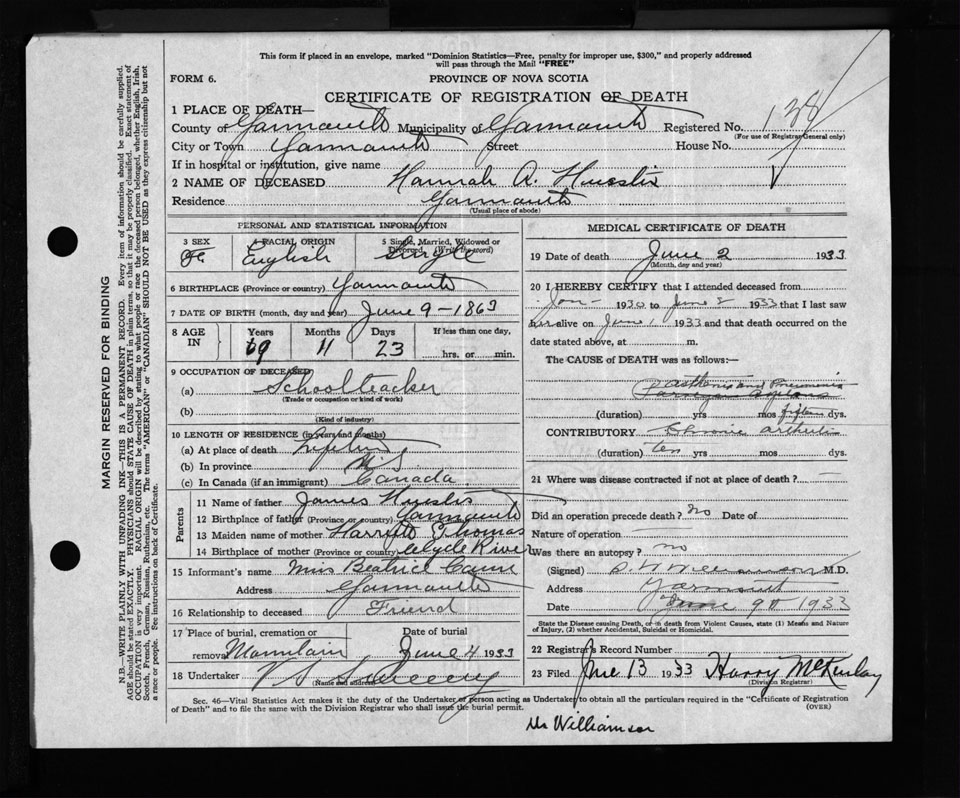 This form if placed in an envelope, marked "Dominion Statistics—Free, penalty for improper use, $300," and properly addressed
will pass through the Mail "FREE"
FORM 6.
PROVINCE OF NOVA SCOTIA
CERTIFICATE OF REGISTRATION OF DEATH
1 PLACE OF DEATH—
County of Yarmouth Municipality of Yarmouth Registered No. 138
(For use of Registrar General only)
City or Town Yarmouth Street House No.
If in hospital or institution, give name
2 NAME OF DECEASED Hannah A. Huestis
Residence Yarmouth
(Usual place of abode)
PERSONAL AND STATISTICAL INFORMATION
3 SEX 4 RACIAL ORIGIN 5 Single, Married, Widowed or
Divorced (Write the word)
Fe English Single
6 BIRTHPLACE (Province or country) Yarmouth
7 DATE OF BIRTH (month, day and year) June 9 - 1863
8 AGE IN Years Months Days If less than one day,
69 11 23 hrs. or min.
9 OCCUPATION OF DECEASED
(a) Schoolteacher
(Trade or occupation or kind of work)
(b)
(Kind of industry)
10 LENGTH OF RESIDENCE (in years and months)
(a) At place of death Lifetime
(b) In province N S
(c) In Canada (if an immigrant) Canada
Parents
11 Name of father James Huestis
12 Birthplace of father (Province or country) Yarmouth
13 Maiden name of mother Thomas
14 Birthplace of mother (Province or country) Clyde River
15 Informant's name Miss Beatrice
Address Yarmouth
16 Relationship to deceased Friend
17 Place of burial, cremation or Date of burial
removal Mountain June 4 1933
18 Undertaker V S Sweeny
(Name and address)
MEDICAL CERTIFICATE OF DEATH
19 Date of death June 2 1933
(Month, day and year)
20 I HEREBY CERTIFY that I attended deceased from
Jan - 1930 to June 2 1933 that I last saw
her alive on June 1 1933 and that death occurred on the
date stated above, at m.
The CAUSE of DEATH was as follows:—
and Pneumonia
(duration) yrs mos fifteen dys.
CONTRIBUTORY Chronic arthritis
(duration) ten yrs mos dys.
21 Where was disease contracted if not at place of death?
Did an operation precede death? no Date of
Nature of operation
Was there an autopsy? no
(Signed) Williamson M.D.
Address Yarmouth
Date June 9th 1933
State the Disease causing Death, or in death from Violent Causes, state (1) Means and Nature
of Injury, (2) whether Accidental, Suicidal or Homicidal.
22 Registrar's Record Number
23 Filed June 13 1933 Harry McKinlay
(Division Registrar)
Sec. 46—Vital Statistics Act makes it the duty of the Undertaker or person acting as Undertaker to obtain all the particulars required in the "Certificate of Registration
of Death" and to file the same with the Division Registrar who shall issue the burial permit. (OVER)
Dr Williamson
MARGIN RESERVED FOR BINDING
N.B.—WRITE PLAINLY WITH UNFADING INK—THIS IS A PERMANENT RECORD. Every item of information should be carefully supplied.
AGE should be stated EXACTLY. PHYSICIANS should STATE CAUSE OF DEATH in plain terms, so that it may be properly classified. Exact statement of
OCCUPATION is very important. RACIAL ORIGIN will be described by stating to what people or race the deceased person belonged, whether English, Irish,
Scotch, French, German, Russian, Ruthenian, etc. The terms "AMERICAN" or "CANADIAN" SHOULD NOT BE USED as they express citizenship but not
a race or people. See instructions on back of Certificate.